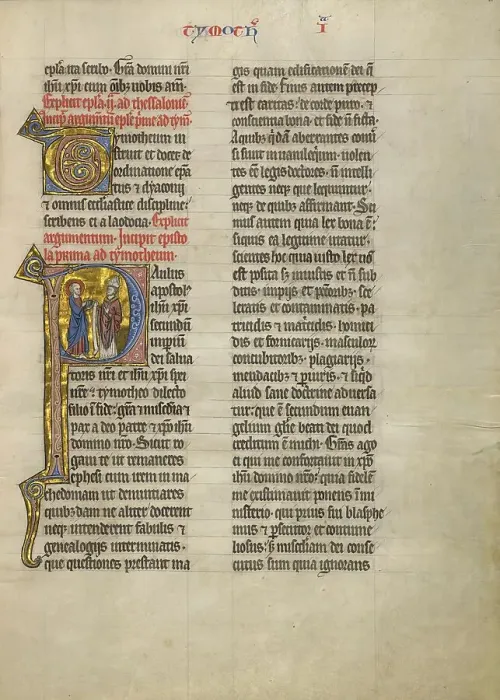 TYMOTH̄ I
ep̄la ita scribo. Gr̄a domini n̄ri
ih̄u xp̄i cum om̄ib; uobis am̄.
Explicit ep̄la .ij. ad thessaloniē.
Incip̄ argumūtū ep̄le p̄me ad tẏm̄.
Tymotheum in
struit et docet de
ordinatione ep̄a
tus ⁊ dyaconij
⁊ omnis ecclastice discipline
scribens ei a laodicia. Explicit
argumentum. Incipit episto
la prima ad tẏmotheum.
Paulus
apostol'
ih̄u xp̄i
secundū
impiū
dei salua
toris n̄ri et ih̄u xp̄i spei
n̄re: tymotheo dilecto
filio ī fide. gr̄a ⁊ miscd̄ia ⁊
pax a deo patre ⁊ xp̄o ih̄u
domino n̄ro. Sicut ro
gaui te ut remaneres
ephesi cum irem in ma
chedoniam ut denuntiares
quib;dam ne aliter docerent
neq; intenderent fabulis ⁊
genealogijs interminatis.
que questiones prestant ma
gis quam edificationē dei q̄
est in fide. Finis autem p̄cep
ti est caritas. de corde puro. ⁊
conscientia bona. et fide n̄ ficta.
A quib; q̇dā aberrantes conū
si sunt in uaniloquiū. uolen
tes eē legis doctores. n̄ intelli
gentes neq; que loquuntur.
neq; de quib; affirmant. Sci
mus autem quia lex bona ē:
siquis ea legitime utatur.
scientes hoc quia iusto lex nō
est posita s; iniustis et n̄ sub
ditis. impijs et pc̄corib;. sce
leratis et contaminatis. pa
tricidis ⁊ matricidis. homici
dis et fornicarijs. masculor̄
concubitorib;. plagiarijs.
mendacib; ⁊ p̄iuris. ⁊ siq̇d
aliud sane doctrine aduersa
tur. que ē secundum euan
gelium gl̄ie beati dei quod
creditum ē michi. Gr̄as ago
ei qui me confortauit in xp̄o
ih̄u domino n̄ro. quia fidelē
me existimauit ponens ī mi
nisterio. qui prius fui blasphe
mus ⁊ p̄secutor et contume
liosus. s; miscd̄iam dei conse
cutus sum quia ignorans